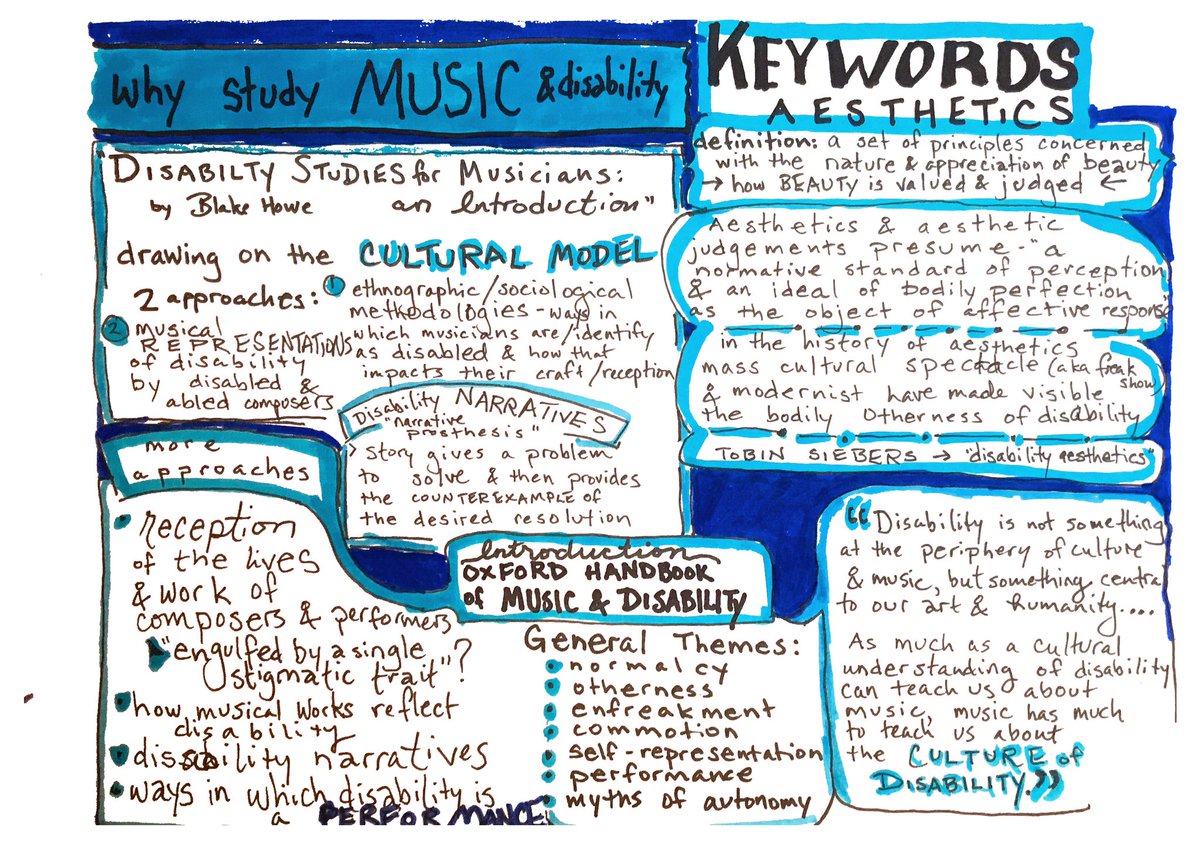 why study MUSIC & disability
"DISABILTY STUDIES for Musicians:
by Blake Howe an Introduction"
drawing on the CULTURAL MODEL
2 approaches:
① ethnographic/sociological
methodologies - ways in
which musicians are/identify
as disabled & how that
impacts their craft/reception
② musical
REPRESENTATIONS
of disability
by disabled &
abled composers
Disability NARRATIVES
"narrative
prosthesis"
> Story gives a problem
to solve & then provides
the COUNTEREXAMPLE OF
the desired resolution
more
approaches
• reception
of the lives
& work of
composers & performers
"engulfed by a single
stigmatic trait"?
• how musical works reflect
disability
• disability narratives
• ways in which disability is
a PERFORMANCE
Introduction
OXFORD HANDBOOK
of MUSIC & DISABILITY
General Themes:
• normalcy
• otherness
• enfreakment
• commotion
• self-representation
• performance
• myths of autonomy
KEYWORDS
AESTHETICS
definition: a set of principles concerned
with the nature & appreciation of beauty
→ how BEAUTY is valued & judged ←
Aesthetics & aesthetic
judgements presume - "a
normative standard of perception
& an ideal of bodily perfection
as the object of affective response
in the history of aesthetics
mass cultural spectacle (aka freak
show)
& modernist have made visible
the bodily Otherness of disability
TOBIN SIEBERS → "disability aesthetics"
"Disability is not something
at the periphery of culture
& music, but something central
to our art & humanity....
As much as a cultural
understanding of disability
can teach us about
music, music has much
to teach us about
the CULTURE of
DISABILITY."